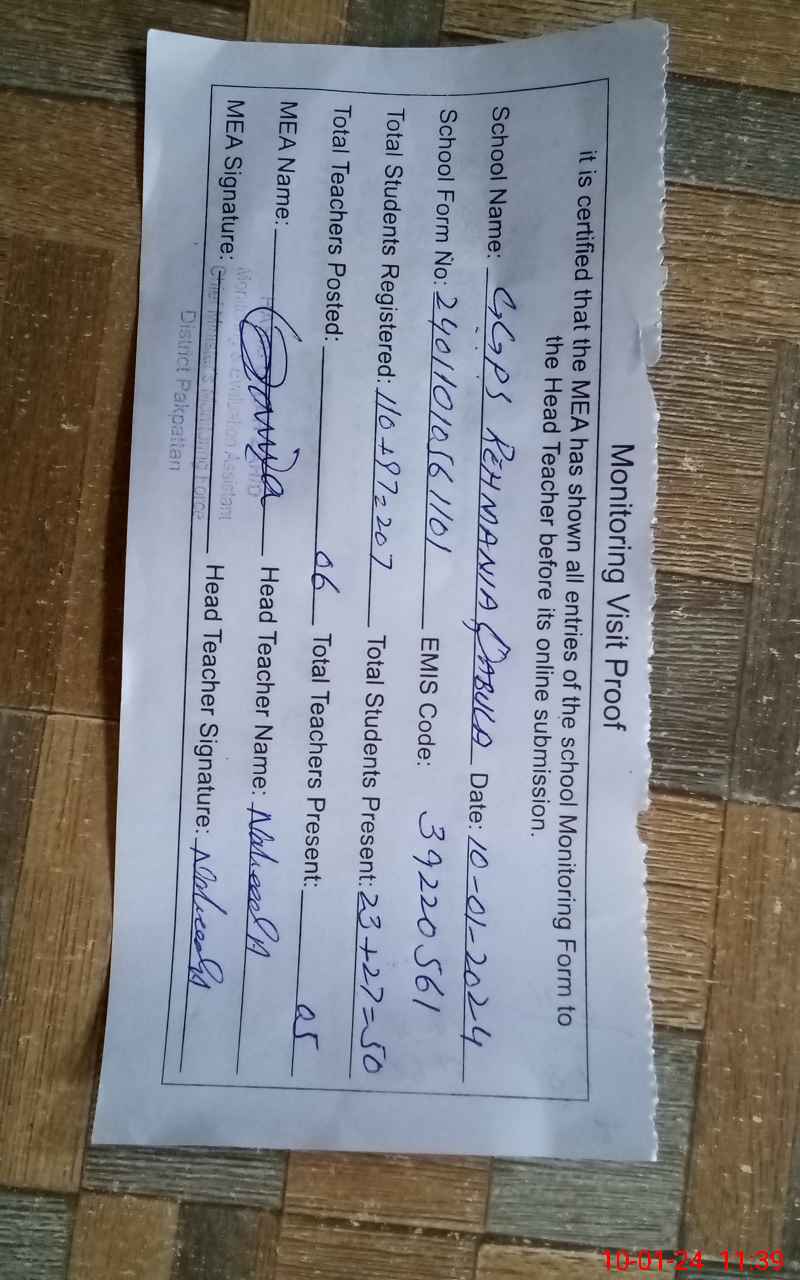 Monitoring Visit Proof
it is certified that the MEA has shown all entries of the school Monitoring Form to
the Head Teacher before its online submission.
School Name: GGPS REHMANIA, QABULA Date: 10-01-2024
School Form No: 2401101010561101 EMIS Code: 39220561
Total Students Registered: 110+97=207 Total Students Present: 23+27=50
Total Teachers Posted: 06 Total Teachers Present: 05
MEA Name: Head Teacher Name:
MEA Signature: Head Teacher Signature:
Monitoring & Evaluation Assistant
Chief Minister's Monitoring Force
District Pakpattan
10-01-24 11:39